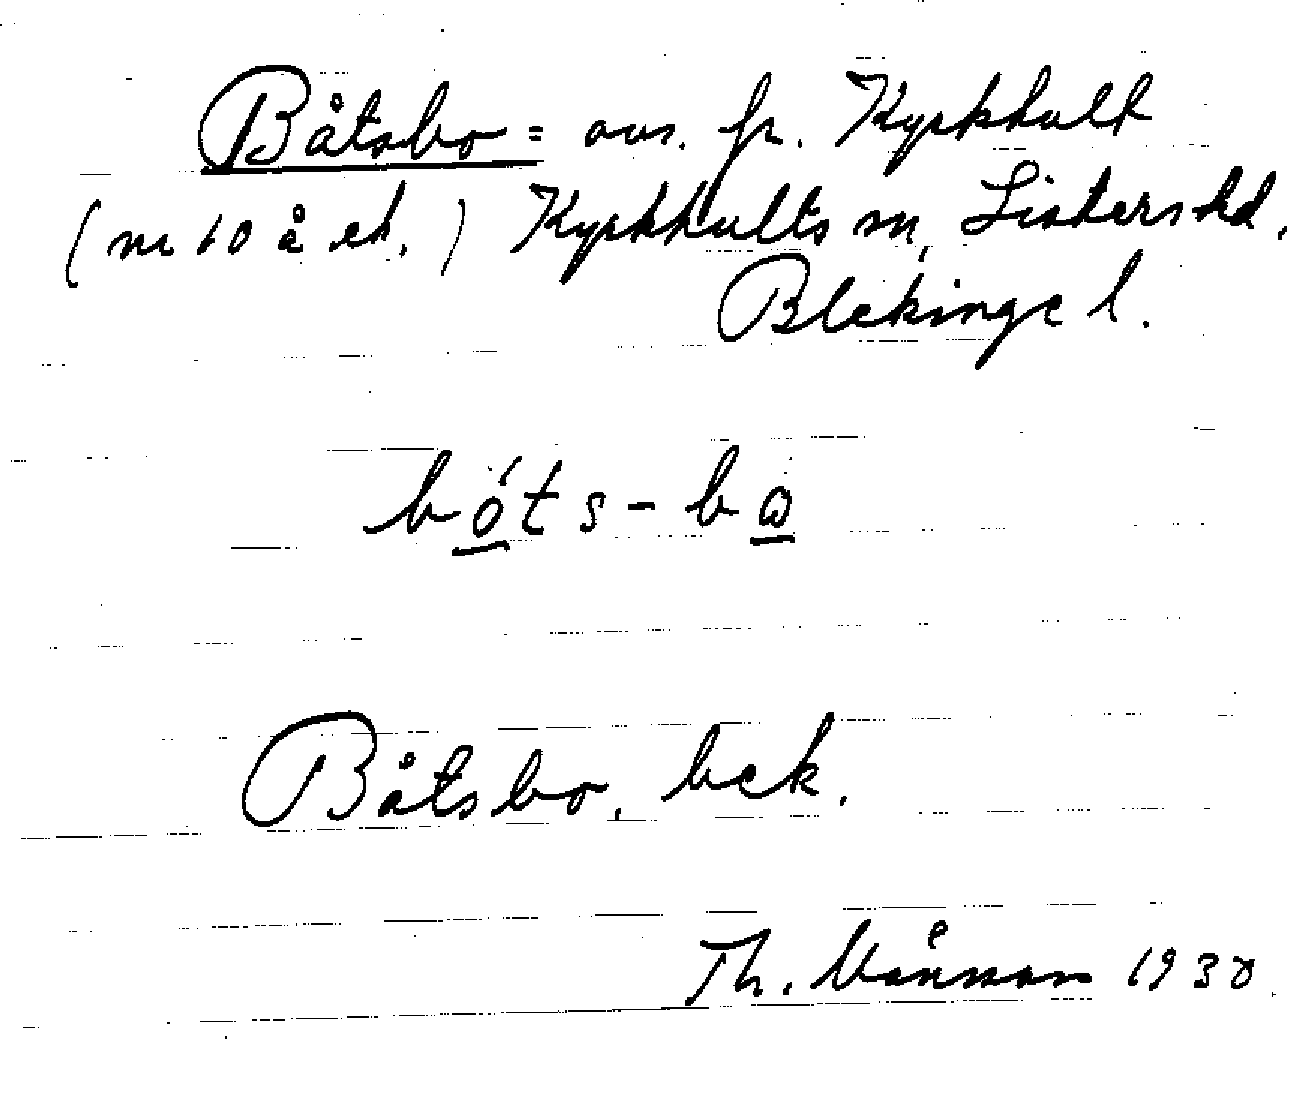 Båtsbo = avs. fr. Kyrkhult
(nr 10 å ek.) Kyrkhults sn, Listers hd,
Blekinge l.
bó̲ts-bo̲
Båtsbo, bek.
Th. 1930